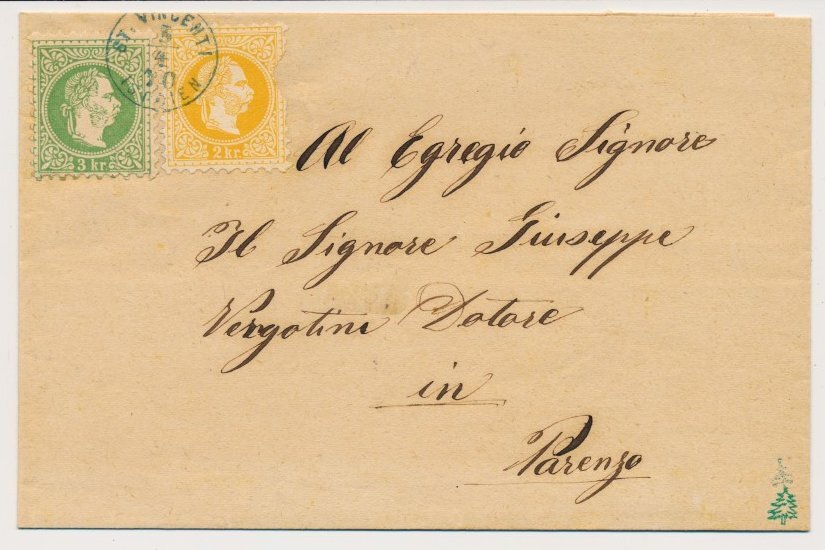 ST. VINCENTI
5
4
70
ISTRIEN
3 kr.
2 kr.
Al Egregio Signore
Il Signore Giuseppe
Vergotini Dotore
in
Parenzo